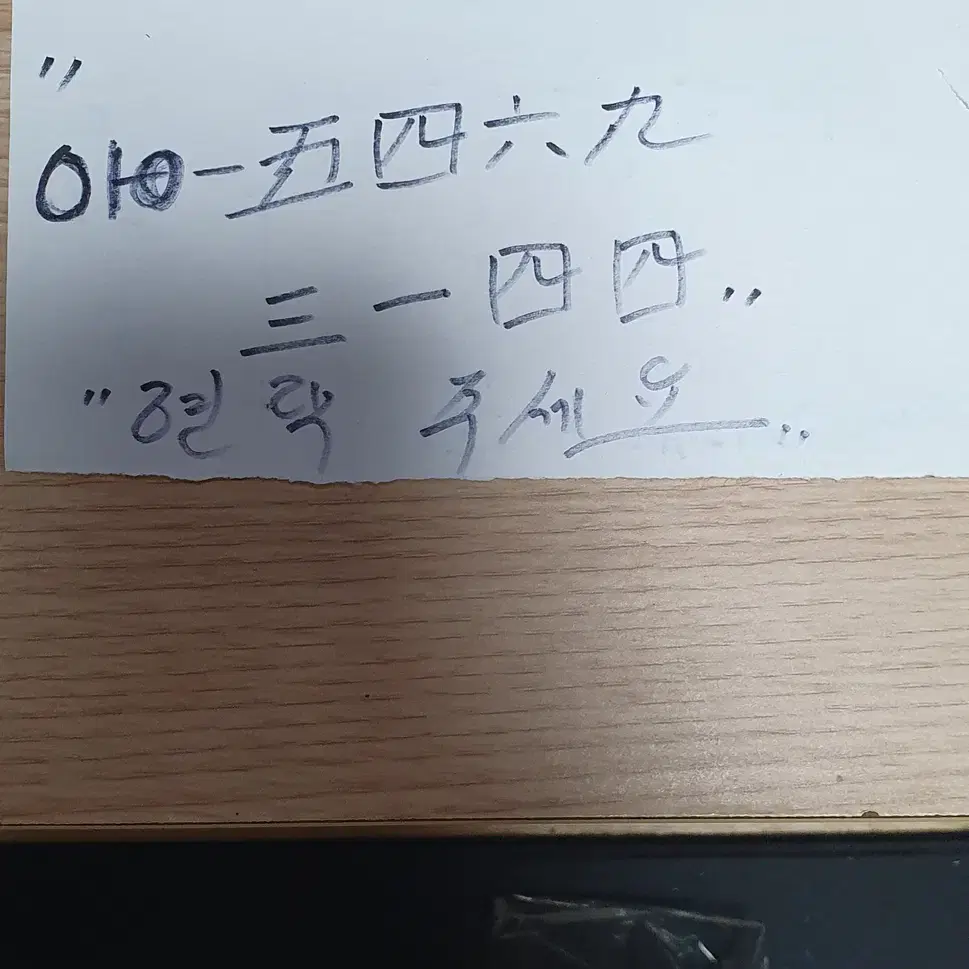 "010-五四六九
三一四四"
"연락 주세요"